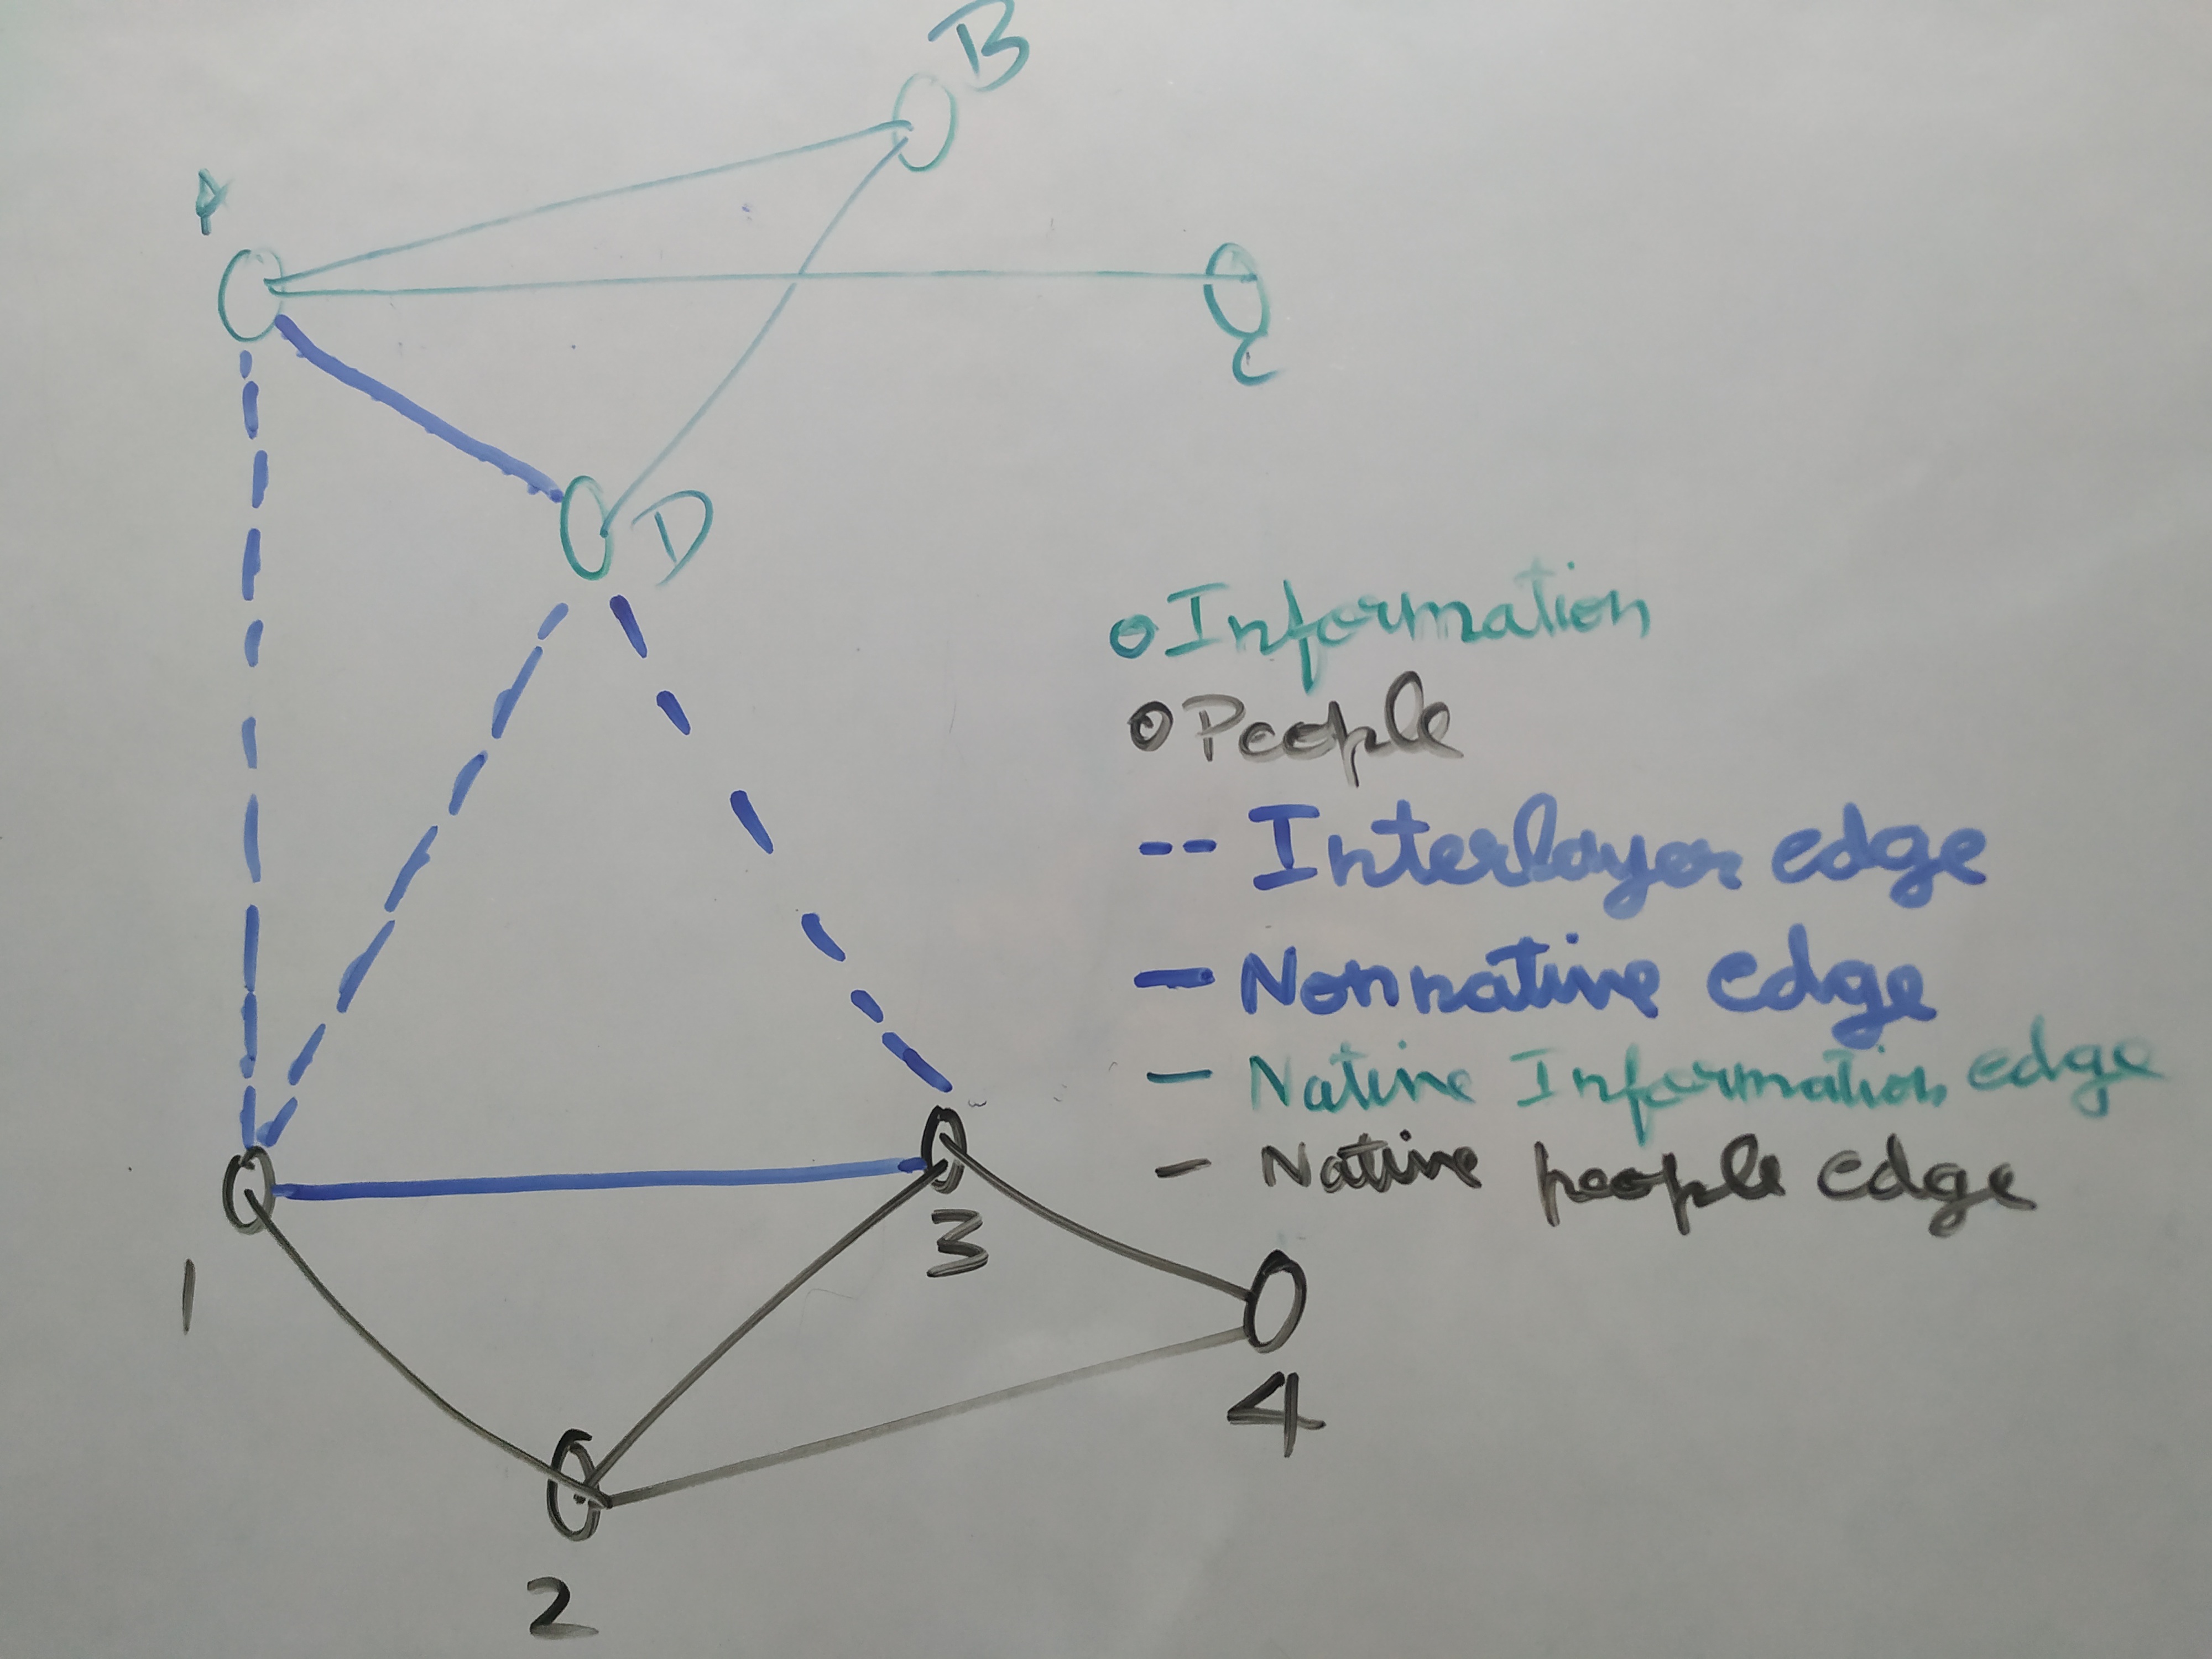 B
A
C
D
Information
People
Interlayer edge
Nonnative edge
Native Information edge
Native people edge
3
1
4
2